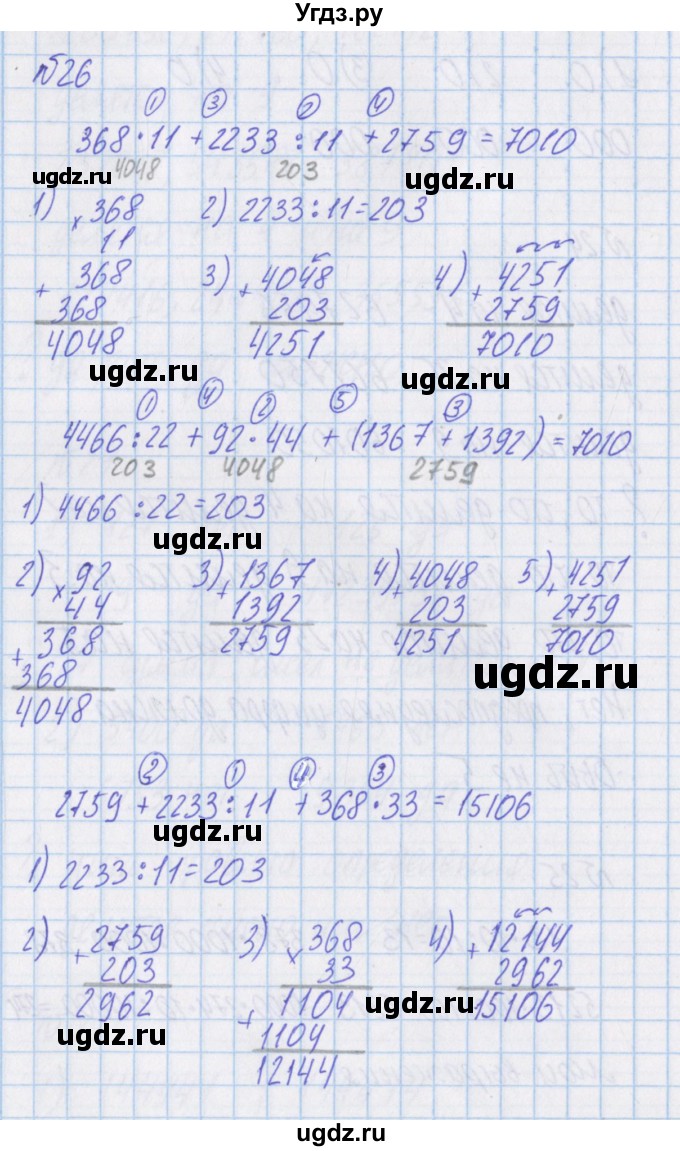 Угдз.ру
№26
① ③ ② ④
368·11+2233:11+2759=7010
4048 203
ugdz.ru ugdz.ru
1) × 368 2) 2233:11=203
11
+ 368 3) + 4048 4) + 4251
368 203 2759
4048 4251 7010
ugdz.ru ugdz.ru
① ④ ② ⑤ ③
4466:22+92·44+(1367+1392)=7010
203 4048 2759
1) 4466:22=203
ugdz.ru ugdz.ru
2) × 92 3) + 1367 4) + 4048 5) + 4251
44 1392 203 2759
+ 368 2759 4251 7010
368 ugdz.ru
4048
② ① ④ ③
2759+2233:11+368·33=15106
ugdz.ru ugdz.ru
1) 2233:11=203
2) + 2759 3) × 368 4) + 12144
203 33 2962
2962 + 1104 15106
ugdz.ru ugdz.ru
1104
12144
ugdz.ru